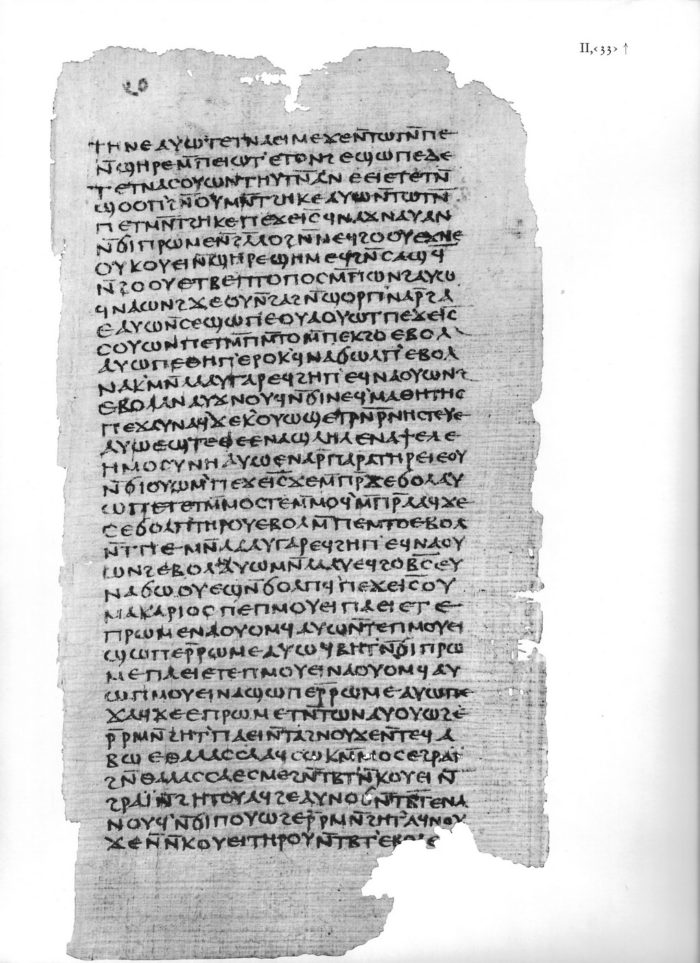 II,<33> ↑
ⲧⲏⲛⲉ ⲁⲩⲱ ⲧⲉⲧⲛⲁⲉⲓⲙⲉ ϫⲉ ⲛ̄ⲧⲱⲧⲛ̄ ⲡⲉ
ⲛ̄ϣⲏⲣⲉ ⲙ̄ⲡⲉⲓⲱⲧ ⲉⲧⲟⲛϩ ⲉϣⲱⲡⲉ ⲇⲉ
ⲧⲉⲧⲛⲁⲥⲟⲩⲱⲛ ⲧⲏⲩⲧⲛ̄ ⲁⲛ ⲉⲉⲓⲉ ⲧⲉⲧⲛ̄
ϣⲟⲟⲡ ϩⲛ̄ ⲟⲩⲙⲛ̄ⲧϩⲏⲕⲉ ⲁⲩⲱ ⲛ̄ⲧⲱⲧⲛ̄
ⲡⲉ ⲧⲙⲛ̄ⲧϩⲏⲕⲉ ⲡⲉϫⲉ ⲓ̄ⲥ̄ ϥⲛⲁϫⲛⲁⲩ ⲁⲛ
ⲛ̄ϭⲓ ⲡⲣⲱⲙⲉ ⲛ̄ϩⲗ̄ⲗⲟ ϩⲛ̄ ⲛⲉϥϩⲟⲟⲩ ⲉϫⲛⲉ
ⲟⲩⲕⲟⲩⲉⲓ ⲛ̄ϣⲏⲣⲉ ϣⲏⲙ ⲉϥϩⲛ̄ ⲥⲁϣϥ̄
ⲛ̄ϩⲟⲟⲩ ⲉⲧⲃⲉ ⲡⲧⲟⲡⲟⲥ ⲙ̄ⲡⲱⲛϩ ⲁⲩⲱ
ϥⲛⲁⲱⲛϩ ϫⲉ ⲟⲩⲛ̄ ϩⲁϩ ⲛ̄ϣⲟⲣⲡ ⲛⲁⲣ̄ ϩⲁ
ⲉ ⲁⲩⲱ ⲛ̄ⲥⲉϣⲱⲡⲉ ⲟⲩⲁ ⲟⲩⲱⲧ ⲡⲉϫⲉ ⲓ̄ⲥ̄
ⲥⲟⲩⲱⲛ ⲡⲉⲧⲙ̄ⲡⲙ̄ⲧⲟ ⲙ̄ⲡⲉⲕϩⲟ ⲉⲃⲟⲗ
ⲁⲩⲱ ⲡⲉⲑⲏⲡ ⲉⲣⲟⲕ ϥⲛⲁϭⲱⲗⲡ ⲉⲃⲟⲗ
ⲛⲁⲕ ⲙⲛ̄ ⲗⲁⲁⲩ ⲅⲁⲣ ⲉϥϩⲏⲡ ⲉϥⲛⲁⲟⲩⲱⲛϩ
ⲉⲃⲟⲗ ⲁⲛ ⲁⲩϫⲛⲟⲩϥ ⲛ̄ϭⲓ ⲛⲉϥⲙⲁⲑⲏⲧⲏⲥ
ⲡⲉϫⲁⲩ ⲛⲁϥ ϫⲉ ⲕⲟⲩⲱϣ ⲉⲧⲣⲛ̄ⲣ̄ⲛⲏⲥⲧⲉⲩⲉ
ⲁⲩⲱ ⲉϣ ⲧⲉ ⲑⲉ ⲉⲛⲁϣⲗⲏⲗ ⲉⲛⲁϯ ⲉⲗⲉ
ⲏⲙⲟⲥⲩⲛⲏ ⲁⲩⲱ ⲉⲛⲁⲣ̄ⲡⲁⲣⲁⲧⲏⲣⲉⲓ ⲉⲟⲩ
ⲛ̄ϭⲓⲟⲩⲱⲙ ⲡⲉϫⲉ ⲓ̄ⲥ̄ ϫⲉ ⲙ̄ⲡⲣ̄ϫⲉ ϭⲟⲗ ⲁⲩ
ⲱ ⲡⲉⲧⲉⲧⲙ̄ⲙⲟⲥⲧⲉ ⲙ̄ⲙⲟϥ ⲙ̄ⲡⲣ̄ⲁⲁϥ ϫⲉ
ⲥⲉϭⲟⲗⲡ ⲧⲏⲣⲟⲩ ⲉⲃⲟⲗ ⲙ̄ⲡⲉⲙⲧⲟ ⲉⲃⲟⲗ
ⲛ̄ⲧⲡⲉ ⲙⲛ̄ ⲗⲁⲁⲩ ⲅⲁⲣ ⲉϥϩⲏⲡ ⲉϥⲛⲁⲟⲩ
ⲱⲛϩ ⲉⲃⲟⲗ ⲁⲛ ⲁⲩⲱ ⲙⲛ̄ ⲗⲁⲁⲩ ⲉϥϩⲟⲃ̄ⲥ̄ ⲉⲩ
ⲛⲁϭⲱ ⲟⲩⲉϣⲛ̄ ϭⲟⲗⲡϥ ⲡⲉϫⲉ ⲓ̄ⲥ̄ ⲟⲩ
ⲙⲁⲕⲁⲣⲓⲟⲥ ⲡⲉ ⲡⲙⲟⲩⲉⲓ ⲡⲁⲉⲓ ⲉⲧⲉ
ⲡⲣⲱⲙⲉ ⲛⲁⲟⲩⲟⲙϥ ⲁⲩⲱ ⲛ̄ⲧⲉ ⲡⲙⲟⲩⲉⲓ
ϣⲱⲡⲉ ⲣ̄ⲣⲱⲙⲉ ⲁⲩⲱ ϥⲃⲏⲧ ⲛ̄ϭⲓ ⲡⲣⲱ
ⲙⲉ ⲡⲁⲉⲓ ⲉⲧⲉ ⲡⲙⲟⲩⲉⲓ ⲛⲁⲟⲩⲟⲙϥ ⲁⲩ
ⲱ ⲡⲙⲟⲩⲉⲓ ⲛⲁϣⲱⲡⲉ ⲣ̄ⲣⲱⲙⲉ ⲁⲩⲱ ⲡⲉ
ϫⲁϥ ϫⲉ ⲉⲡⲣⲱⲙⲉ ⲧⲛ̄ⲧⲱⲛ ⲁⲩⲟⲩⲱϩⲉ
ⲣ̄ⲣⲙⲛ̄ϩⲏⲧ ⲡⲁⲉⲓ ⲛ̄ⲧⲁϩⲛⲟⲩϫⲉ ⲛ̄ⲧⲉϥⲁ
ⲃⲱ ⲉⲑⲁⲗⲁⲥⲥⲁ ⲁϥⲥⲱⲕ ⲙ̄ⲙⲟⲥ ⲉϩⲣⲁⲓ̈
ϩⲛ̄ ⲑⲁⲗⲁⲥⲥⲁ ⲉⲥⲙⲉϩ ⲛ̄ⲧⲃ̄ⲧ ⲛ̄ⲕⲟⲩⲉⲓ ⲛ̄
ϩⲣⲁⲓ̈ ⲛ̄ϩⲏⲧⲟⲩ ⲁϥϩⲉ ⲁⲩⲛⲟϭ ⲛ̄ⲧⲃ̄ⲧ ⲉⲛⲁ
ⲛⲟⲩϥ ⲛ̄ϭⲓ ⲡⲟⲩⲱϩⲉ ⲣ̄ⲣⲙⲛ̄ϩⲏⲧ ⲁϥⲛⲟⲩ
ϫⲉ ⲛ̄ⲛ̄ⲕⲟⲩⲉⲓ ⲧⲏⲣⲟⲩ ⲛ̄ⲧⲃ̄ⲧ ⲉⲃⲟⲗ ⲉ